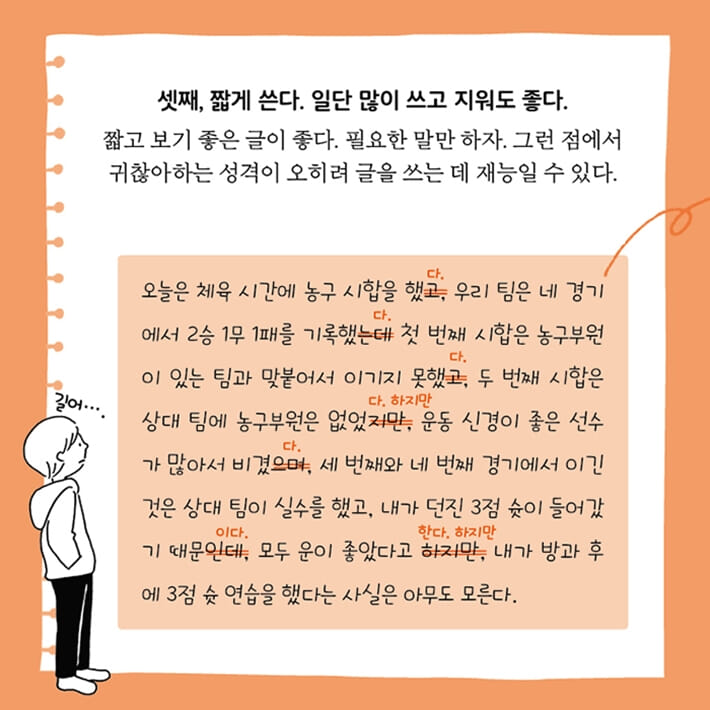 셋째, 짧게 쓴다. 일단 많이 쓰고 지워도 좋다.
짧고 보기 좋은 글이 좋다. 필요한 말만 하자. 그런 점에서
귀찮아하는 성격이 오히려 글을 쓰는 데 재능일 수 있다.
다.
오늘은 체육 시간에 농구 시합을 했고, 우리 팀은 네 경기
다.
에서 2승 1무 1패를 기록했는데 첫 번째 시합은 농구부원
다.
이 있는 팀과 맞붙어서 이기지 못했고, 두 번째 시합은
다. 하지만
상대 팀에 농구부원은 없었지만, 운동 신경이 좋은 선수
길어····
다.
가 많아서 비겼으며, 세 번째와 네 번째 경기에서 이긴
것은 상대 팀이 실수를 했고, 내가 던진 3점 슛이 들어갔
이다.
한다. 하지만
기 때문인데, 모두 운이 좋았다고 하지만, 내가 방과 후
에 3점 슛 연습을 했다는 사실은 아무도 모른다.